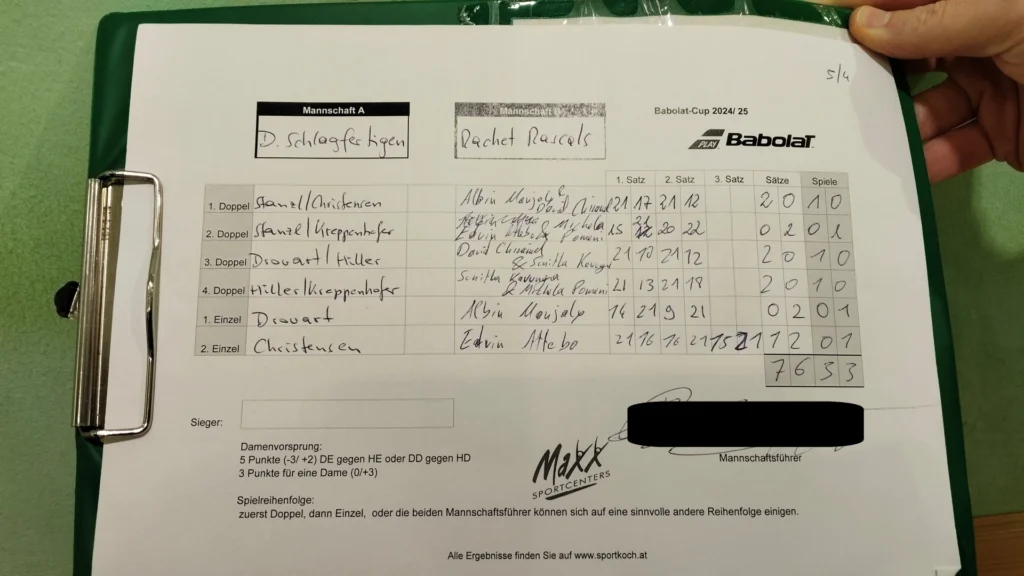 5/4
Mannschaft A
D. Schlagfertigen
Rachet Rascals
Babolat-Cup 2024/ 25
PLAY Babolat
1. Satz 2. Satz 3. Satz Sätze Spiele
1. Doppel Stanzl/Christensen Albin & David 21 17 21 12 2 0 1 0
2. Doppel Stanzl/Kreppenhofer Edvin & Michela 15 21 20 22 0 2 0 1
3. Doppel Drouart/Hiller David & 21 21 12 2 0 1 0
4. Doppel Hiller/Kreppenhofer & 21 13 21 18 2 0 1 0
1. Einzel Drouart Albin 14 21 9 21 0 2 0 1
2. Einzel Christensen Edvin Attebo 21 16 16 21 15 21 1 2 0 1
7 6 3 3
Sieger:
Damenvorsprung:
5 Punkte (-3/ +2) DE gegen HE oder DD gegen HD
3 Punkte für eine Dame (0/+3)
MaXX
SPORTCENTERS
Mannschaftsführer
Spielreihenfolge:
zuerst Doppel, dann Einzel, oder die beiden Mannschaftsführer können sich auf eine sinnvolle andere Reihenfolge einigen.
Alle Ergebnisse finden Sie auf www.sportkoch.at